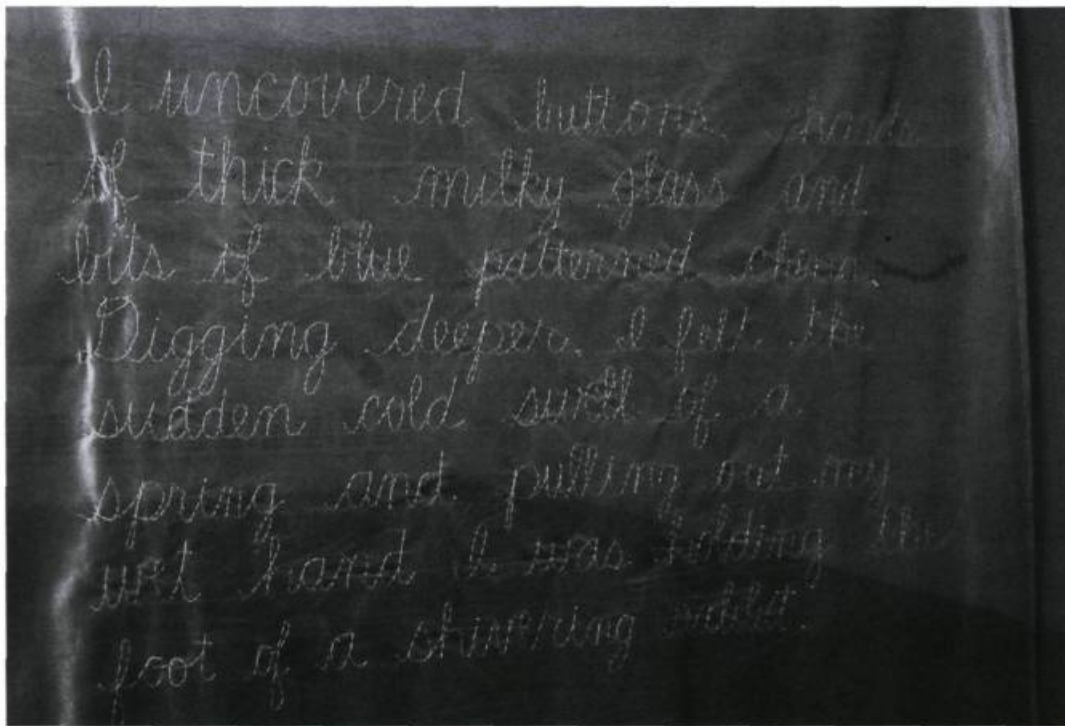 I uncovered buttons
of thick milky glass and
bits of blue patterned china.
Digging deeper. I felt the
sudden cold swell of a
spring and pulling out my
wet hand I was holding the
foot of a shivering rabbit.